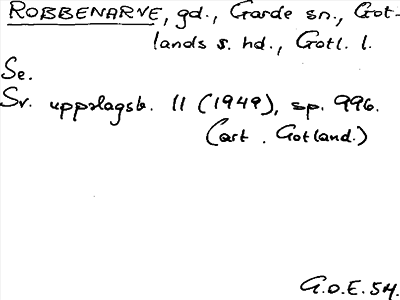 ROBBENARVE, gd., Garde sn., Got-
lands s. hd., Gotl. l.
Se.
Sv. uppslagsb. 11 (1949), sp. 996.
(art. Gotland.)
G.O.E. 54.